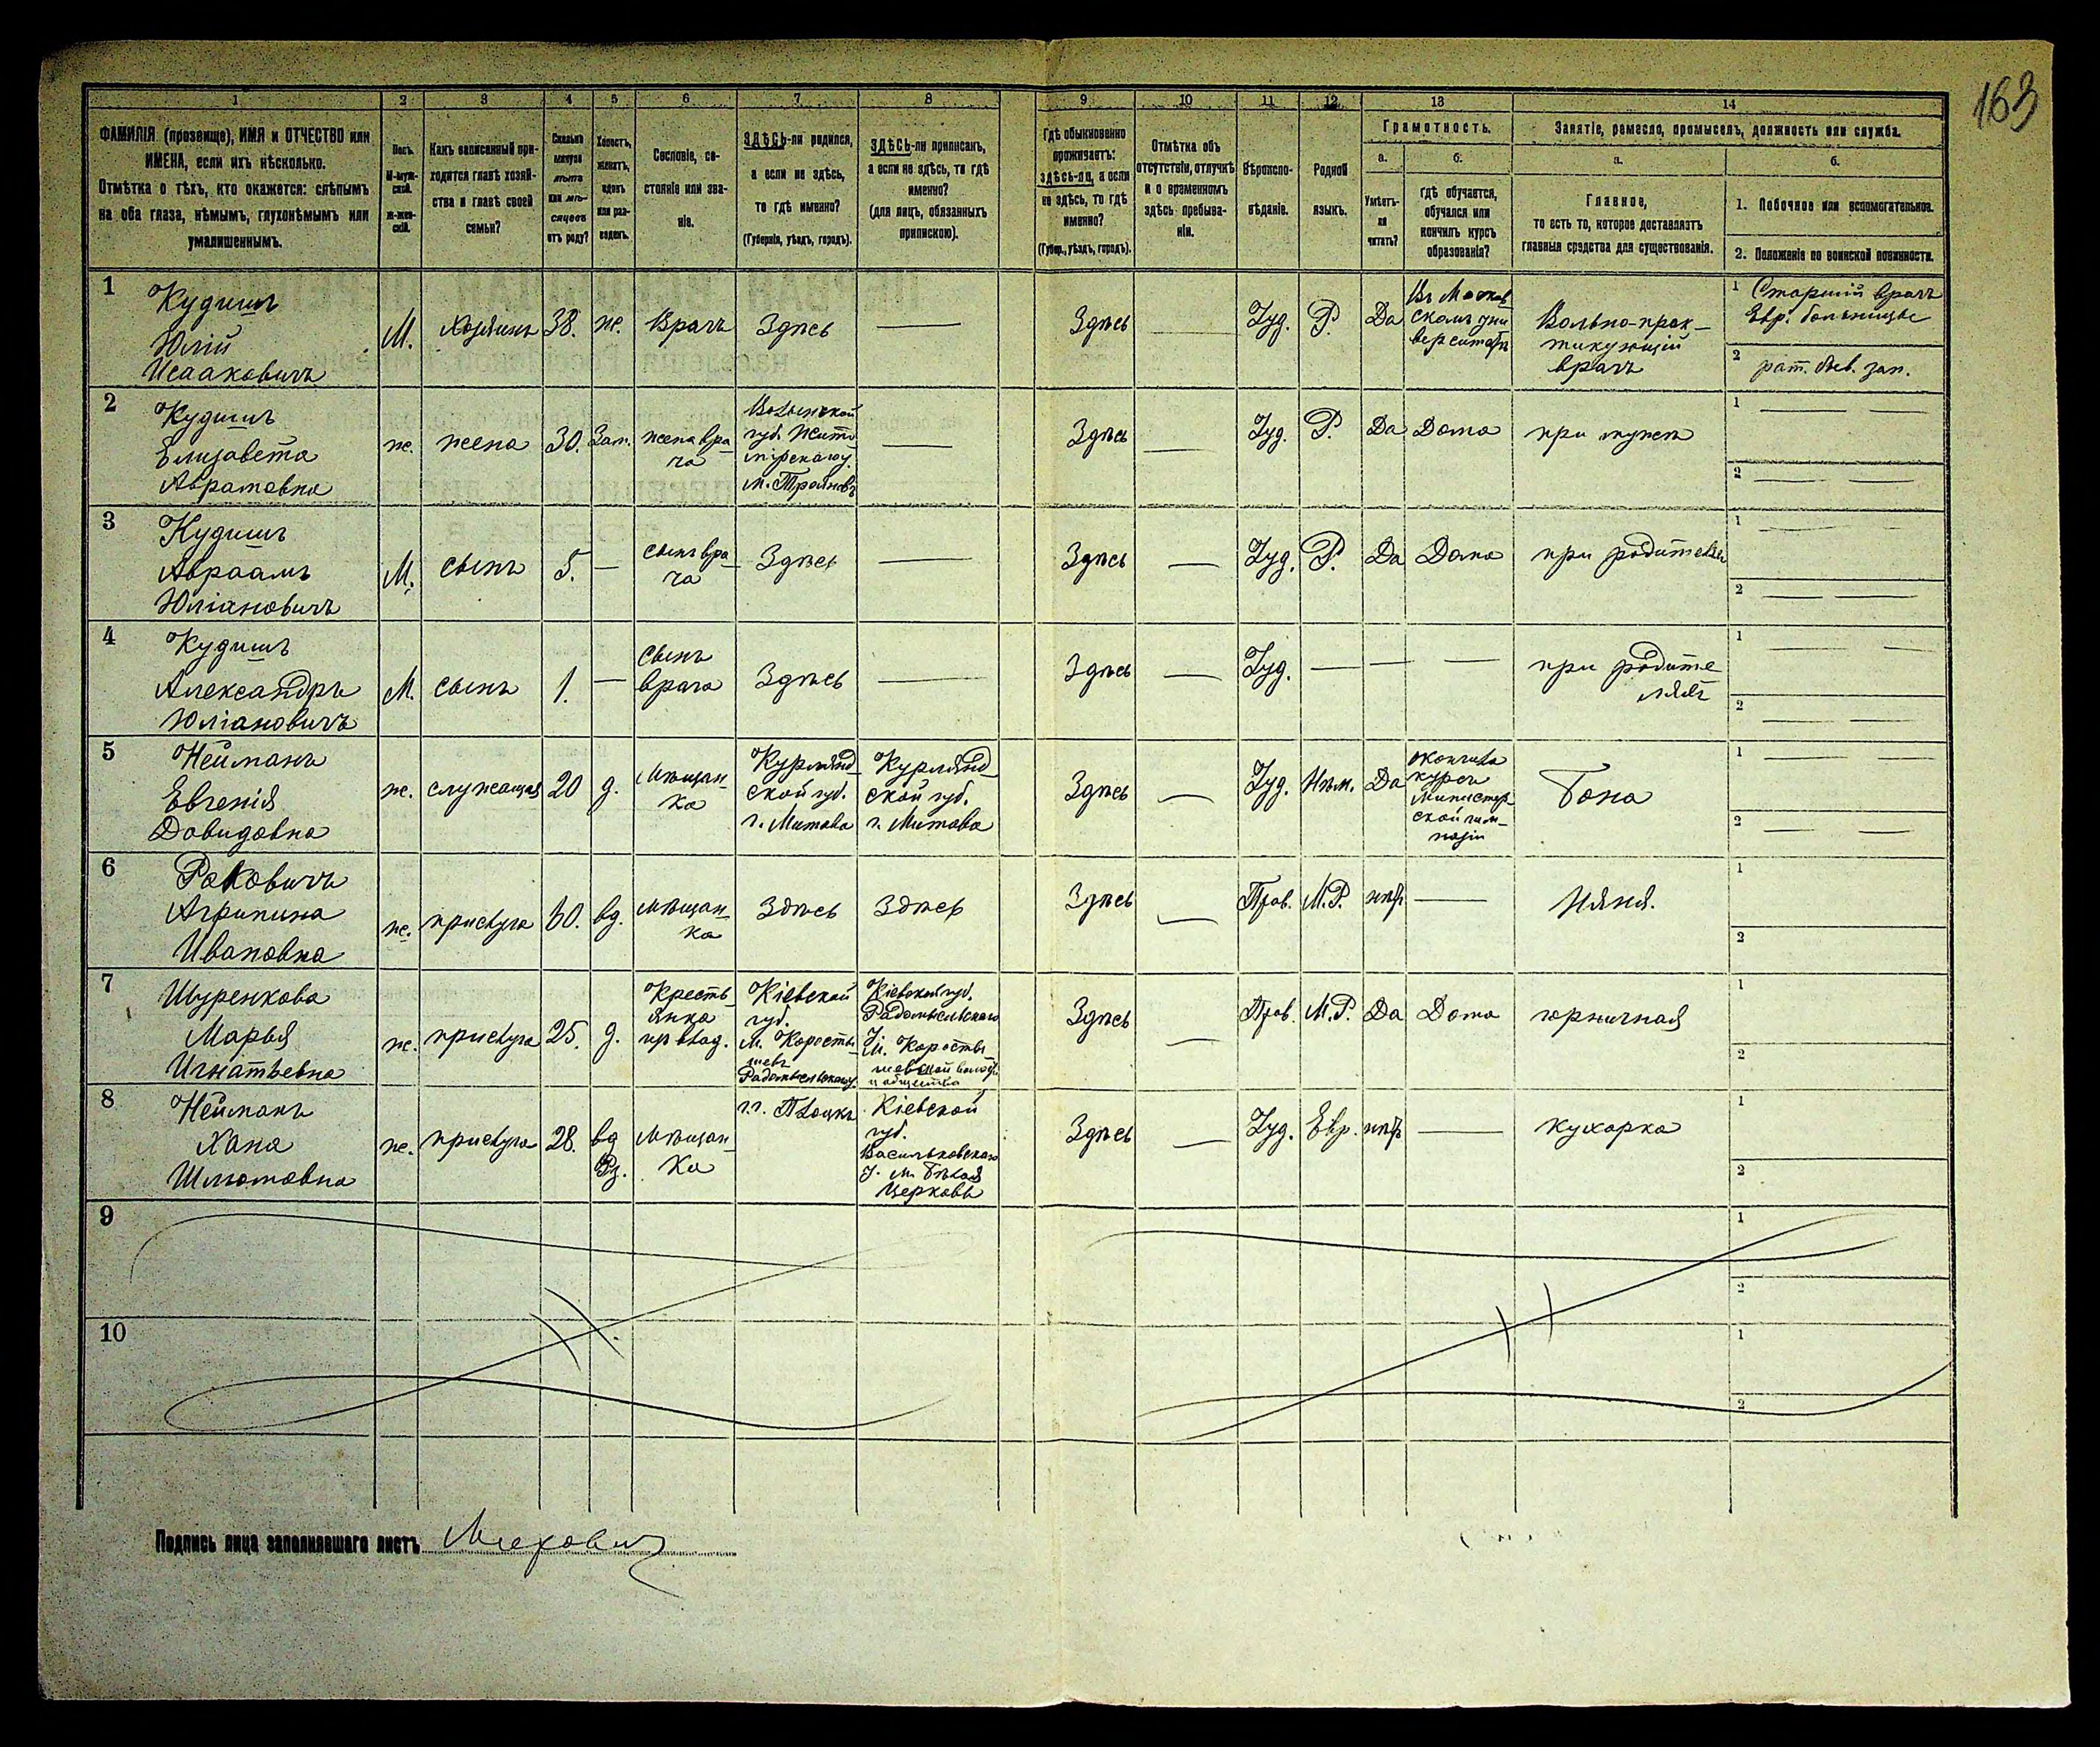 163
1 2 3 4 5 6 7 8 9 10 11 12 13 14
ФАМИЛІЯ (прозвище), ИМЯ и ОТЧЕСТВО или
ИМЕНА, если ихъ нѣсколько.
Отмѣтка о тѣхъ, кто окажется: слѣпымъ
на оба глаза, нѣмымъ, глухонѣмымъ или
умалишеннымъ.
Полъ.
М-муж-
ской.
ж-жен-
скій.
Какъ записанный при-
ходится главѣ хозяй-
ства и главѣ своей
семьи?
Сколько
минуло
лѣтъ
или мѣ-
сяцевъ
отъ роду?
Холостъ,
женатъ,
вдовъ
или раз-
веденъ.
Сословіе, со-
стояніе или зва-
ніе.
ЗДѢСЬ-ли родился,
а если не здѣсь,
то гдѣ именно?
(Губернія, уѣздъ, городъ).
ЗДѢСЬ-ли приписанъ,
а если не здѣсь, то гдѣ
именно?
(для лицъ, обязанныхъ
припискою).
Гдѣ обыкновенно
проживаетъ:
здѣсь-ли, а если
не здѣсь, то гдѣ
именно?
(Губер., уѣздъ, городъ).
Отмѣтка объ
отсутствіи, отлучкѣ
и о временномъ
здѣсь пребыва-
ніи.
Вѣроиспо-
вѣданіе.
Родной
языкъ.
Грамотность.
а.
Умѣетъ-
ли
читать?
б.
Гдѣ обучается,
обучался или
кончилъ курсъ
образованія?
Занятіе, ремесло, промыселъ, должность или служба.
а.
Главное,
то есть то, которое доставляетъ
главныя средства для существованія.
б.
1. Побочное или вспомогательное.
2. Положеніе по воинской повинности.
1
Кудишъ
Юлій
Исааковичъ
М.
хозяинъ
38.
ж.
Врачъ
Здѣсь
Здѣсь
Іуд.
Р.
Да
Въ Москов
скомъ уни
верситетѣ
Вольно-прак-
тикующій
врачъ
1 Старшій врачъ
Евр. больницы
2 рат.
зап.
2
Кудишъ
Елизавета
Абрамовна
ж.
жена
30.
Зам.
жена вра
ча
Волынской
губ. Жито
мірскаго у.
м. Трояновъ
Здѣсь
Іуд.
Р.
Да
Дома
при мужѣ
1
2
3
Кудишъ
Авраамъ
Юліановичъ
М.
сынъ
5.
сынъ вра
ча
Здѣсь
Здѣсь
Іуд.
Р.
Да
Дома
при родителях
1
2
4
Кудишъ
Александръ
Юліановичъ
М.
сынъ
1.
Сынъ
врача
Здѣсь
Здѣсь
Іуд.
при родите
ляхъ
1
2
5
Нейманъ
Евгенія
Давидовна
ж.
служащая
20
д.
Мѣщан-
ка
Курлянд-
ской губ.
г. Митава
Курлянд-
ской губ.
г. Митава
Здѣсь
Іуд.
Нѣм.
Да
окончила
курсъ
министер
ской гим-
назіи
Бона
1
2
6
Раковичъ
Агрипина
Ивановна
ж.
прислуга
60.
вд.
мѣщан-
ка
Здѣсь
Здѣсь
Здѣсь
Прав.
М.Р.
нѣтъ
Няня.
1
2
7
Шуренкова
Марья
Игнатьевна
ж.
прислуга
25.
д.
Кресть-
янка
Кіевской
губ.
м. Коросты-
шевъ
Радомысльскаго у.
Кіевской губ.
Радомысльскаго
У. м. Коросты-
шевской волости
и общества
Здѣсь
Прав.
М.Р.
Да
Дома
горничная
1
2
8
Нейманъ
Хана
Шлюмовна
ж.
прислуга
28.
вд
Рз.
Мѣщан-
ка
г.г. Плоцкъ
Кіевской
губ.
Васильковскаго
У. м. Бѣлая
Церковь
Здѣсь
Іуд.
Евр.
нѣтъ
кухарка
1
2
9
1
2
10
1
2
Подпись лица заполнявшаго листъ